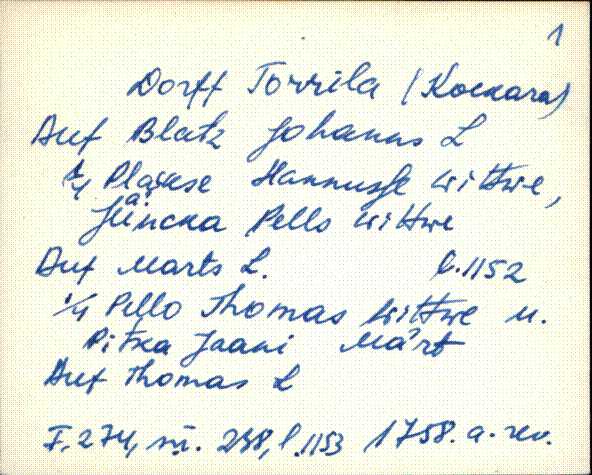 1
Dorff Torrila (Kockara)
Auf Blatz Johanns L
1/4 Hannusse Wittwe,
Jüncka Pello Wittwe
Auf Marts L. l. 1152
1/4 Pello Thomas Wittwe u.
Pitka Jaani Märt
Auf Thomas L
F. 274, nü. 238, l. 1153 1758. a. rev.